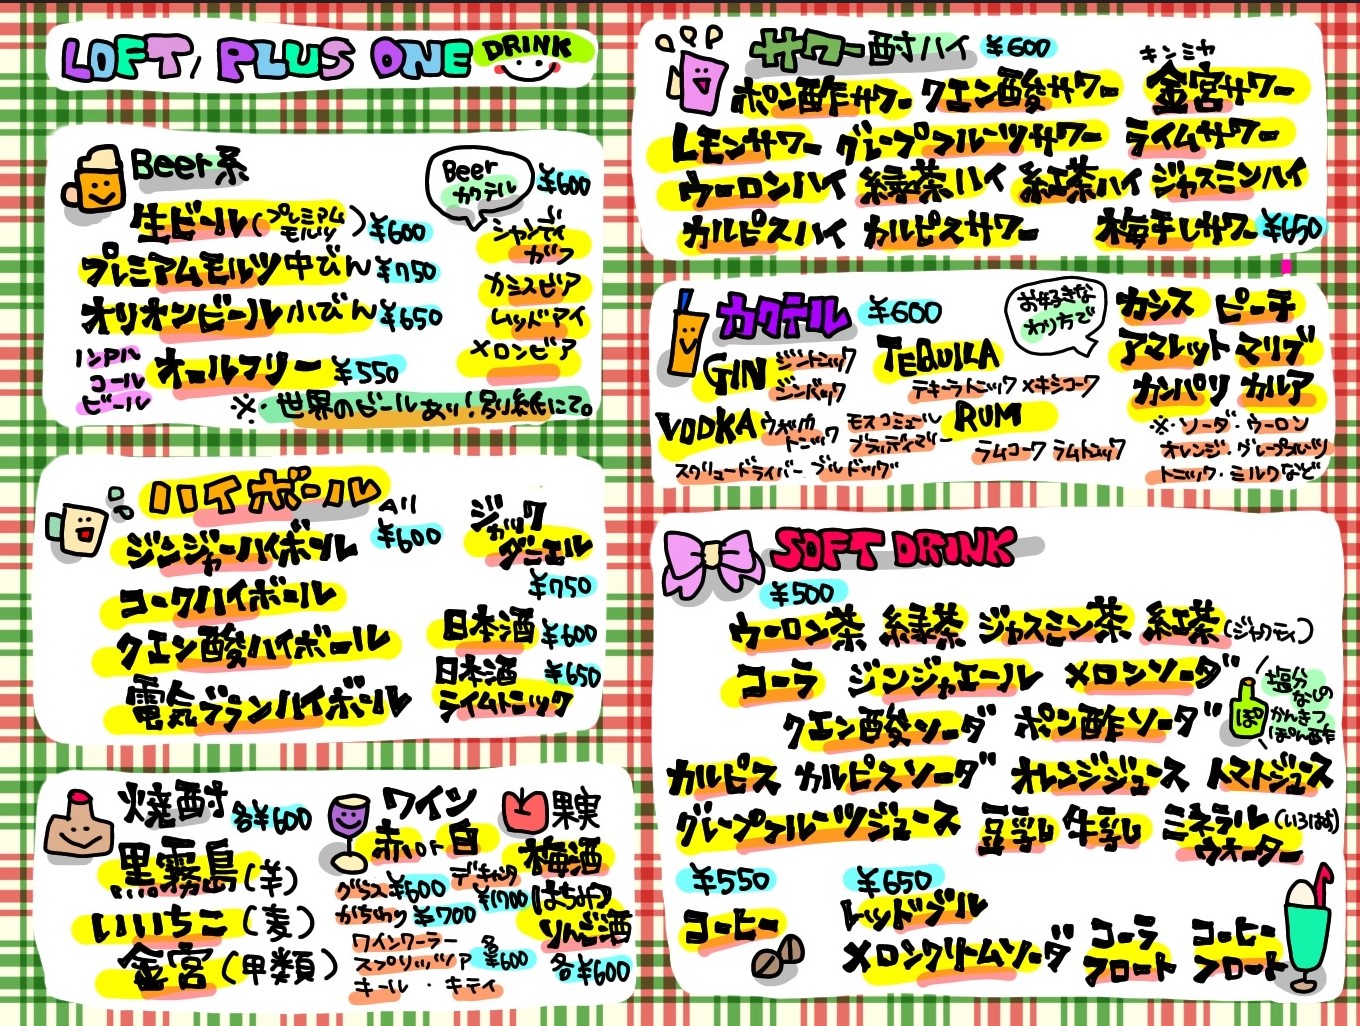 LOFT/PLUS ONE DRINK
Beer系
生ビール(プレミアムモルツ) ¥600
プレミアムモルツ中びん ¥750
オリオンビール小びん ¥650
ノンアルコールビール オールフリー ¥550
※・世界のビールあり!別紙にて。
Beerカクテル ¥600
シャンディガフ
カシスビア
レッドアイ
メロンビア
ハイボール All ¥600
ジンジャーハイボール
コークハイボール
クエン酸ハイボール
電気ブランハイボール
ジャックダニエル
¥750
日本酒 ¥600
日本酒 ¥650
ライムトニック
焼酎 各¥600
黒霧島(芋)
いいちこ(麦)
金宮(甲類)
ワイン
赤or白
グラス¥600 デキャンタ¥1700
かちわり ¥700
ワインクーラー
スプリッツァ 各¥600
キール・キティ
果実
梅酒
はちみつ
りんご酒
各¥600
サワー酎ハイ ¥600
ポン酢サワー クエン酸サワー 金宮サワー
キンミヤ
レモンサワー グレープフルーツサワー ライムサワー
ウーロンハイ 緑茶ハイ 紅茶ハイ ジャスミンハイ
カルピスハイ カルピスサワー 梅干しサワー ¥650
カクテル ¥600
GIN ジントニック
ジンバック
TEQUILA
テキーラトニック メキシコーク
VODKA ウォッカトニック モスコミュール
ブラッディマリー
スクリュードライバー ブルドッグ
RUM
ラムコーク ラムトニック
お好きなわり方で
カシス ピーチ
アマレット マリブ
カンパリ カルア
※・ソーダ・ウーロン
オレンジ・グレープフルーツ
トニック・ミルクなど
SOFT DRINK
¥500
ウーロン茶 緑茶 ジャスミン茶 紅茶(ジャワティ)
コーラ ジンジャエール メロンソーダ
クエン酸ソーダ ポン酢ソーダ
ぽ
塩分なしのかんきつぽん酢
カルピス カルピスソーダ オレンジジュース トマトジュース
グレープフルーツジュース 豆乳 牛乳 ミネラルウォーター(いろはす)
¥550
コーヒー
¥650
レッドブル
メロンクリームソーダ コーラフロート コーヒーフロート